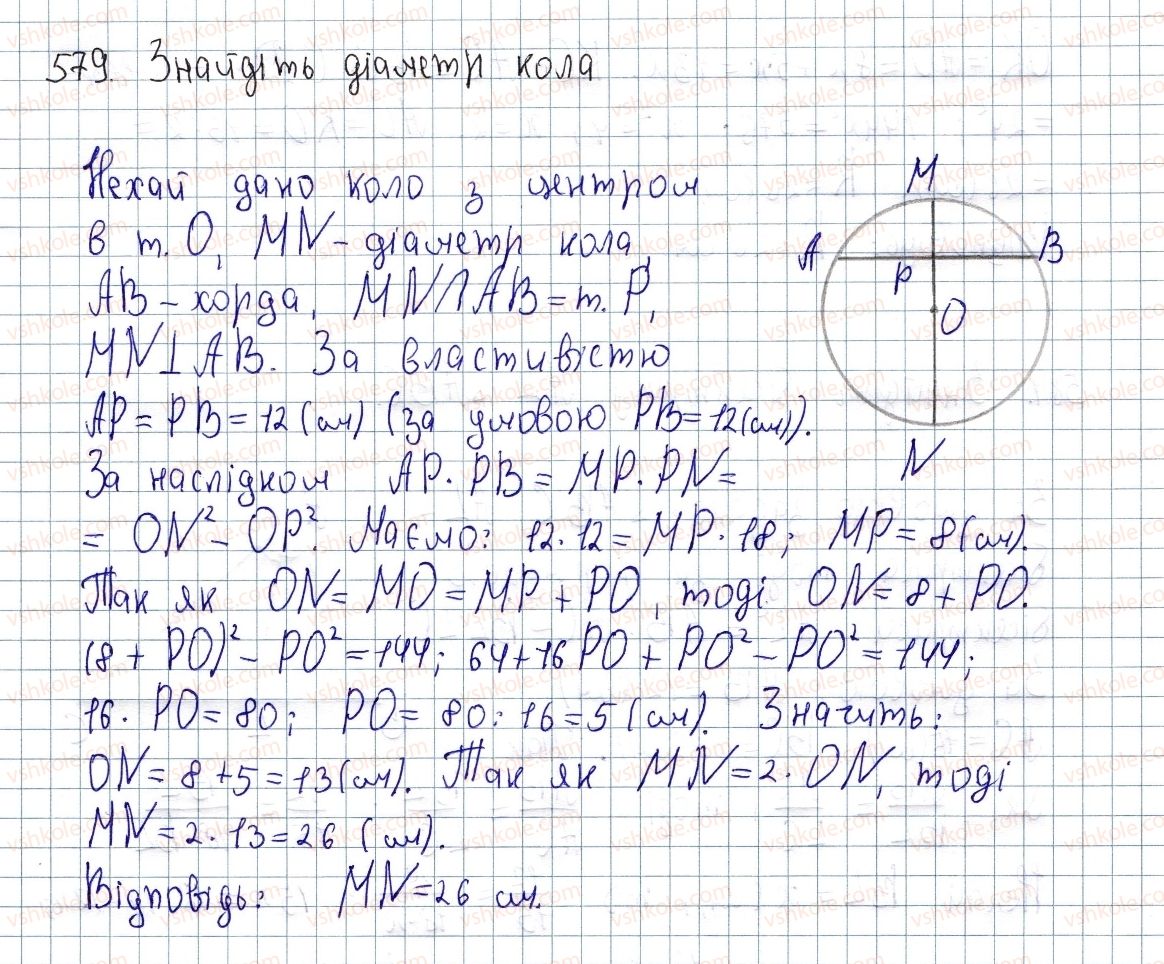 579. Знайдіть діаметр кола
Нехай дано коло з центром
в т. O, MN - діаметр кола,
AB - хорда, MN∩AB = т. P,
MN⊥AB. За властивістю
AP = PB = 12 (см) (за умовою PB = 12 (см)).
За наслідком AP · PB = MP · PN =
= ON² - OP². Маємо: 12 · 12 = MP · 18; MP = 8 (см).
Так як ON = MO = MP + PO, тоді ON = 8 + PO.
(8 + PO)² - PO² = 144; 64 + 16 PO + PO² - PO² = 144;
16 · PO = 80; PO = 80 : 16 = 5 (см). Значить:
ON = 8 + 5 = 13 (см). Так як MN = 2 · ON, тоді
MN = 2 · 13 = 26 (см).
Відповідь: MN = 26 см.
M
A
B
P
O
N
vshkole.com